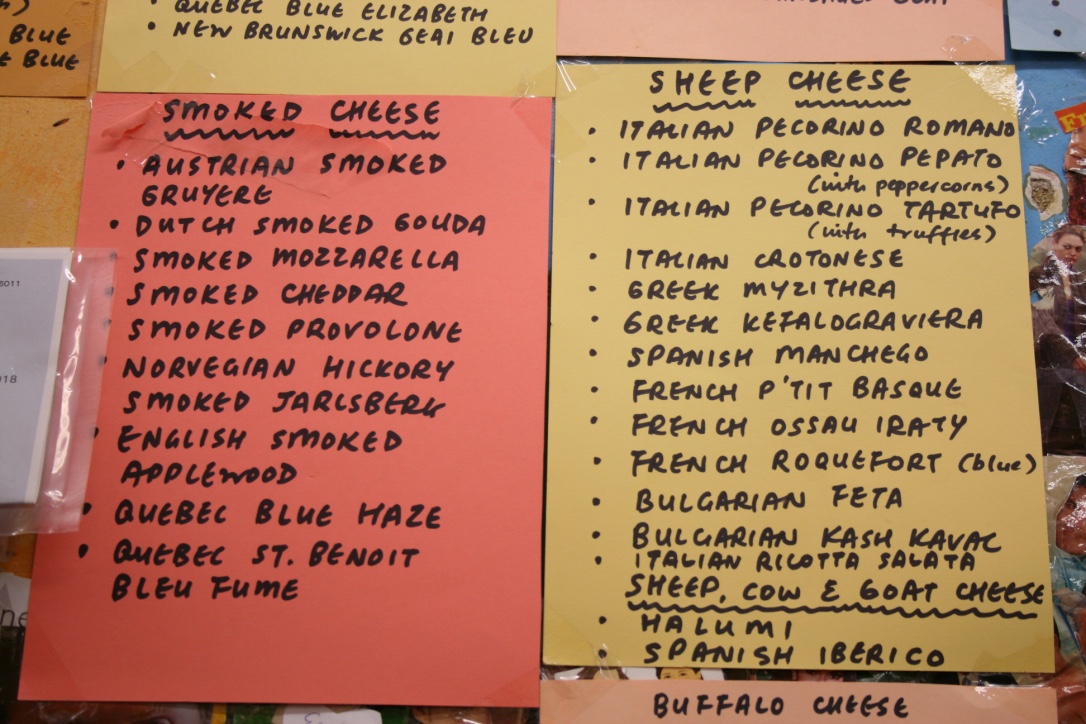 BLUE
BLUE
• QUEBEC BLUE ELIZABETH
• NEW BRUNSWICK GEAI BLEU
SMOKED CHEESE
• AUSTRIAN SMOKED
GRUYERE
• DUTCH SMOKED GOUDA
• SMOKED MOZZARELLA
• SMOKED CHEDDAR
• SMOKED PROVOLONE
• NORVEGIAN HICKORY
SMOKED JARLSBERG
• ENGLISH SMOKED
APPLEWOOD
• QUEBEC BLUE HAZE
• QUEBEC ST. BENOIT
BLEU FUME
SHEEP CHEESE
• ITALIAN PECORINO ROMANO
• ITALIAN PECORINO PEPATO
(with peppercorns)
• ITALIAN PECORINO TARTUFO
(with truffles)
• ITALIAN CROTONESE
• GREEK MYZITHRA
• GREEK KEFALOGRAVIERA
• SPANISH MANCHEGO
• FRENCH P'TIT BASQUE
• FRENCH OSSAU IRATY
• FRENCH ROQUEFORT (blue)
• BULGARIAN FETA
• BULGARIAN KASH KAVAL
• ITALIAN RICOTTA SALATA
SHEEP, COW & GOAT CHEESE
• HALUMI
• SPANISH IBERICO
BUFFALO CHEESE